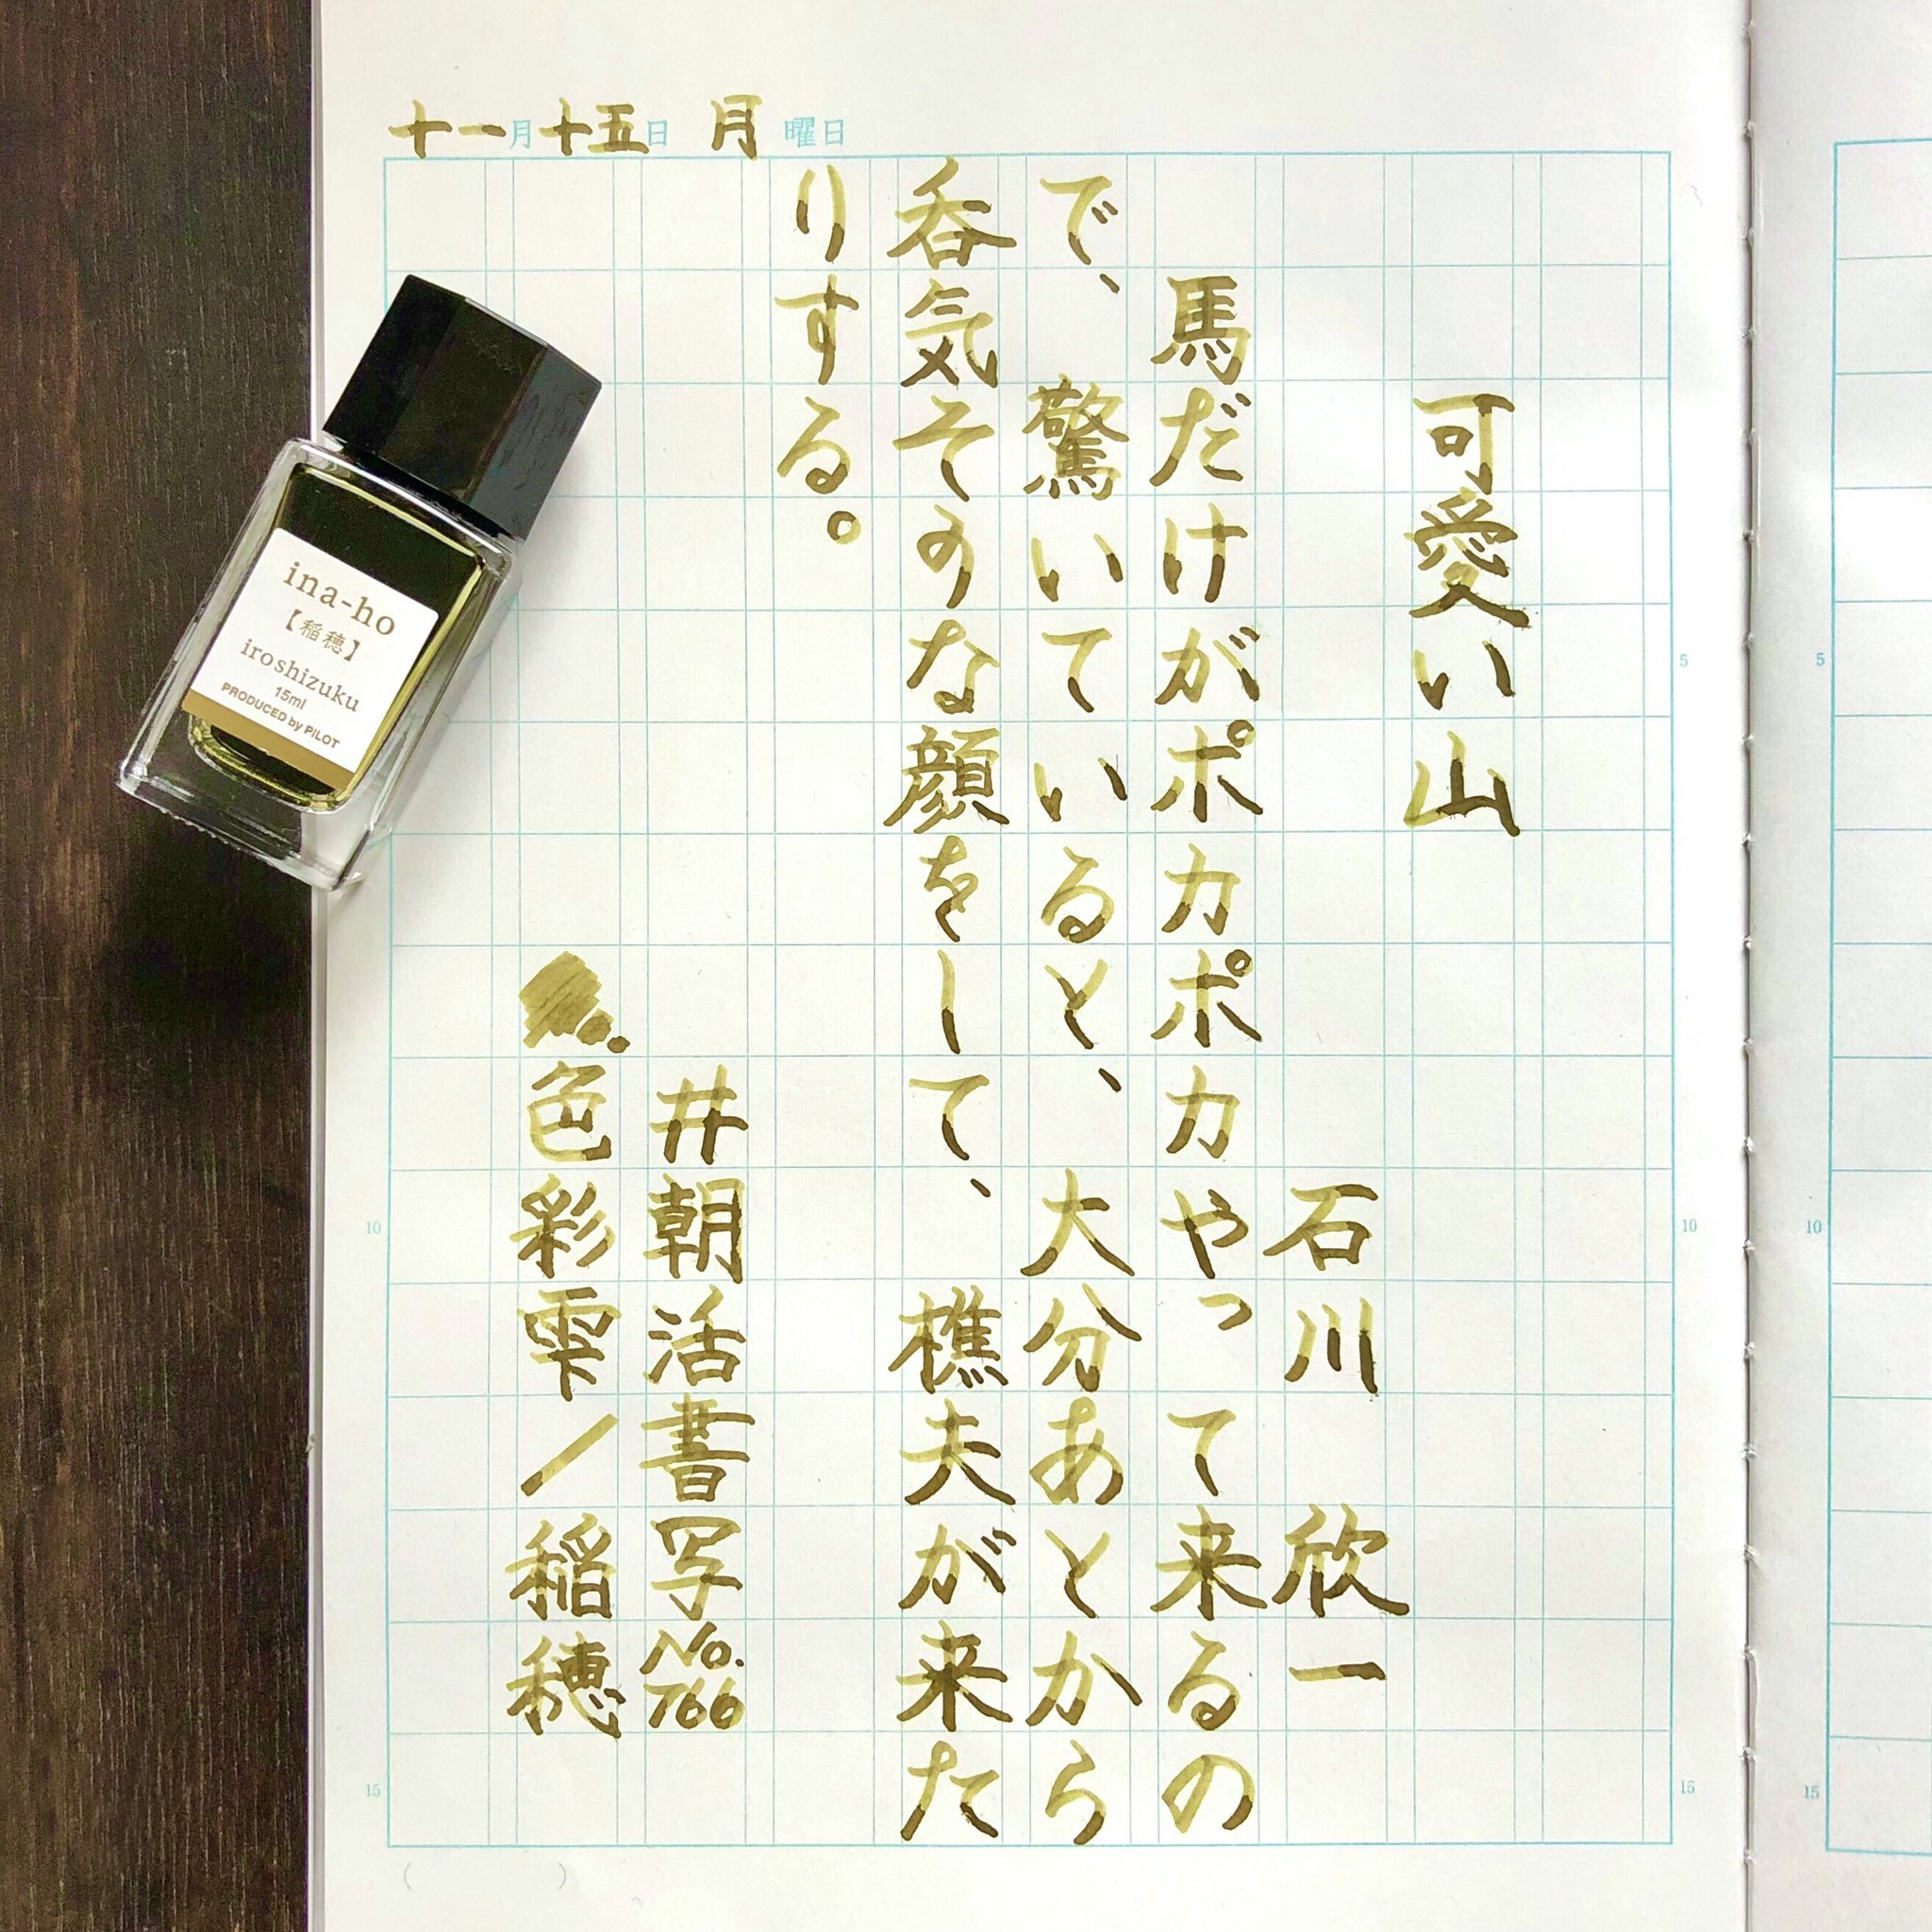 十一月十五日 月曜日
可愛い山
石川 欣一
馬だけがポカポカやって来るの
で、驚いていると、大分あとから
呑気そうな顔をして、樵夫が来た
りする。
#朝活書写No.766
色彩雫/稲穂
ina-ho
【稲穂】
iroshizuku
15ml
PRODUCED by PILOT
5
10
15
5
10
15
10
15
( )